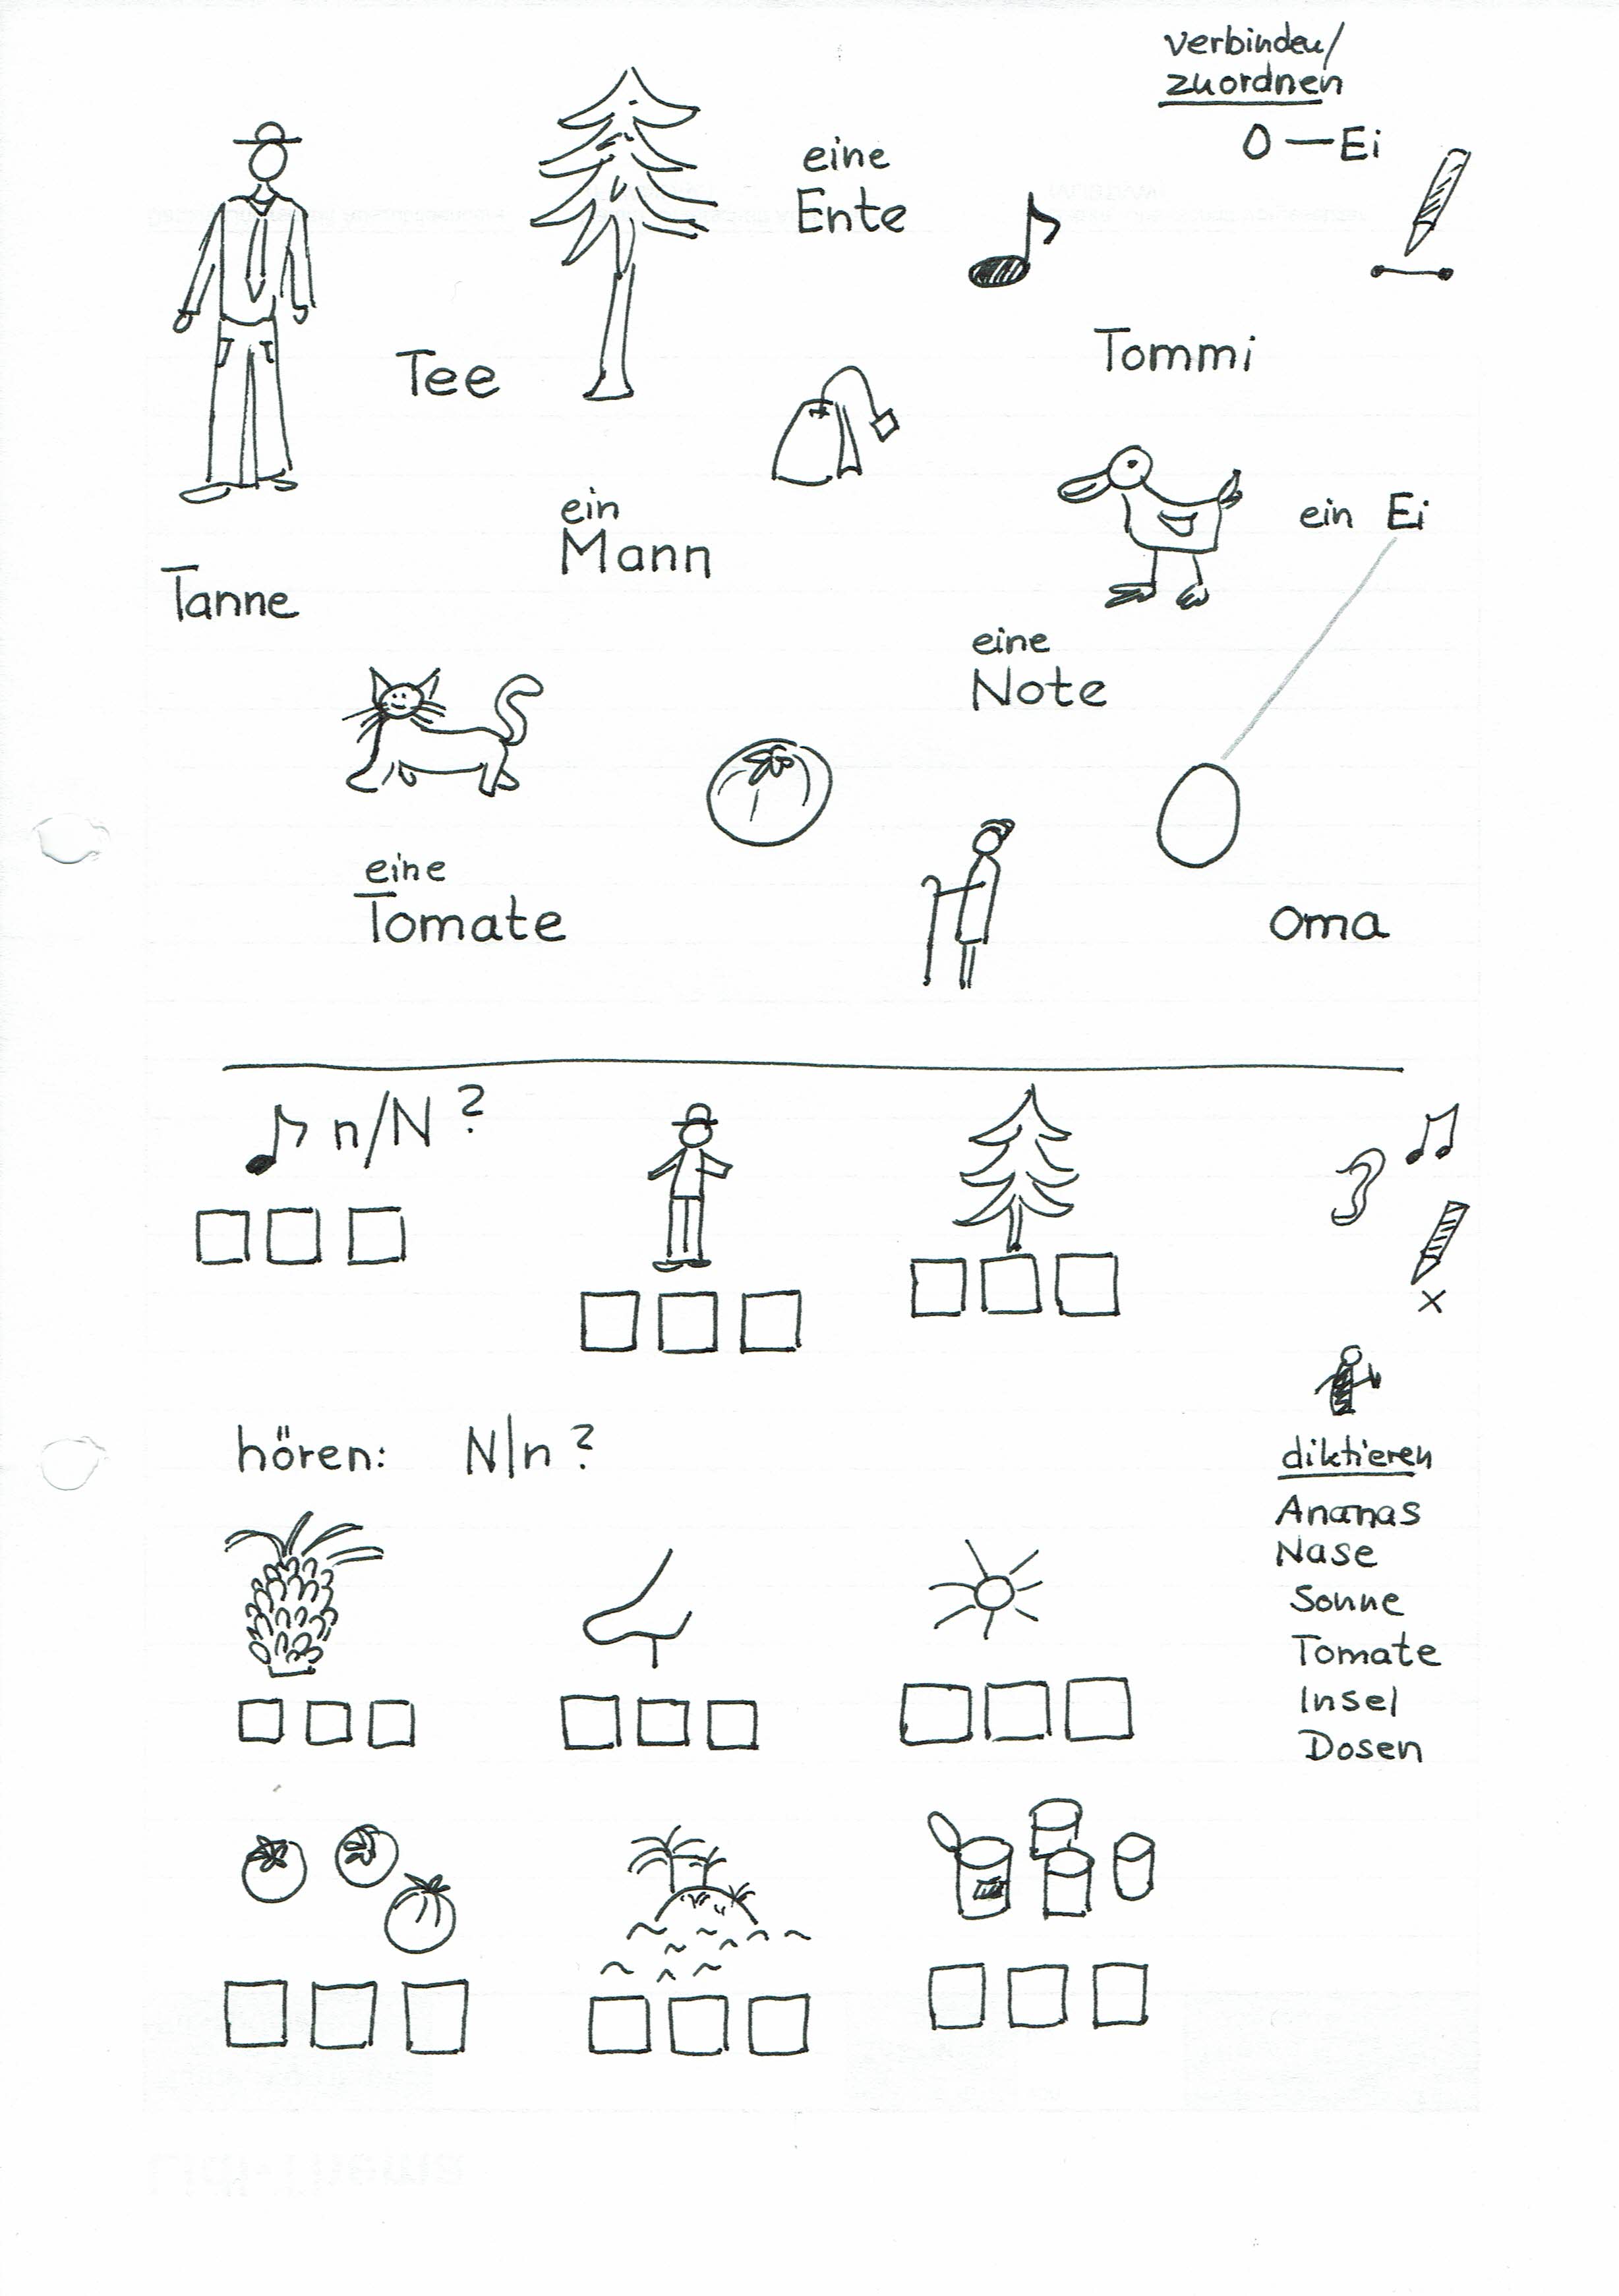 verbinden/
zuordnen
O — Ei
eine
Ente
Tommi
Tee
ein
Mann
ein Ei
Tanne
eine
Note
eine
Tomate
Oma
n/N ?
hören: N|n ?
diktieren
Ananas
Nase
Sonne
Tomate
Insel
Dosen